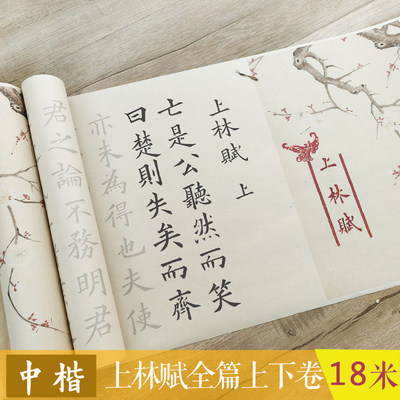 上林賦
上林賦 上
亡是公聽然而笑
曰楚則失矣而齊
亦未為得也夫使
君之論不務明君
中楷
上林赋全篇上下卷
18米